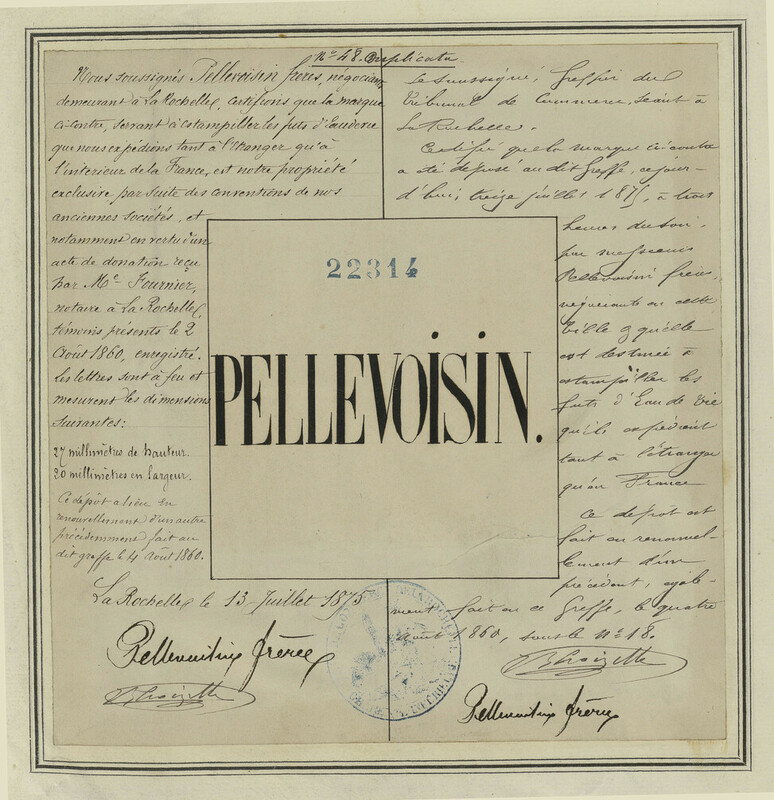 Nº 48. Duplicata
Nous soussignés Pellevoisin frères, négociants
demeurant à La Rochelle, certifions que la marque
ci-contre, servant à estampiller les futs d'Eau de vie
que nous expédions tant à l'étranger qu'à
l'intérieur de la France, est notre propriété
exclusive par suite des conventions de nos
anciennes sociétés, et
notamment en vertu d'un
acte de donation reçu
par Me Fournier,
notaire à La Rochelle,
témoins présents le 2
Août 1860, enregistré.
Les lettres sont à feu et
mesurent les dimensions
suivantes:
27 millimètres de hauteur.
20 millimètres en largeur.
Ce dépôt a lieu en
renouvellement d'un autre
précédemment fait au
dit greffe le 4 Août 1860.
La Rochelle, le 13 Juillet 1875
Pellevoisin frères
22314
PELLEVOISIN.
Le soussigné, Greffier du
Tribunal de Commerce, séant à
La Rochelle.
Certifie que la marque ci-contre
a été déposé au dit Greffe, ce jour-
d'hui, treize juillet 1875, à trois
heures du soir,
par messieurs
Pellevoisin frères,
négociants en cette
ville & qu'elle
est destinée à
estampiller les
futs d'Eau de Vie
qu'ils expédient
tant à l'étranger
qu'en France
Ce dépôt est
fait en renouvel-
lement d'un
précédent, égale-
ment fait en ce Greffe, le quatre
Août 1860, sous le Nº 18.
Pellevoisin frères